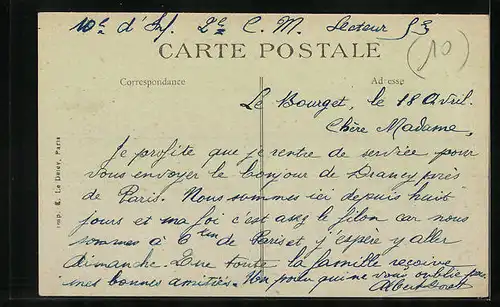 10e d'Inf. 2e C. M. Secteur 53
(10)
CARTE POSTALE
Correspondance
Adresse
Le Bourget, le 18 Avril.
Chère Madame,
Je profite que je rentre de service pour
vous envoyer le bonjour de Drancy près
de Paris. Nous sommes ici depuis huit
jours et ma foi c'est assez le filon car nous
sommes à 6 km de Paris et j'espère y aller
dimanche. Que toute la famille reçoive
mes bonnes amitiés. Un poilu qui ne vous oublie pas.
Albert
Imp. E. Le Deley, Paris